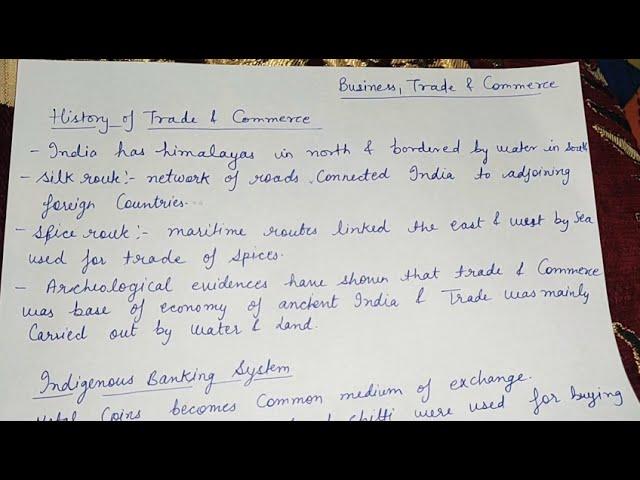 Business, Trade & Commerce
History of Trade & Commerce
- India has himalayas in north & bordered by water in south
- Silk rouk :- network of roads connected India to adjoining
foreign Countries.
- Spice rouk :- maritime routes linked the east & west by Sea
used for trade of spices.
- Archeological evidences have shown that trade & Commerce
was base of economy of ancient India & Trade was mainly
Carried out by water & Land.
Indigenous Banking System
Metal Coins becomes Common medium of exchange.
chitti were used for buying